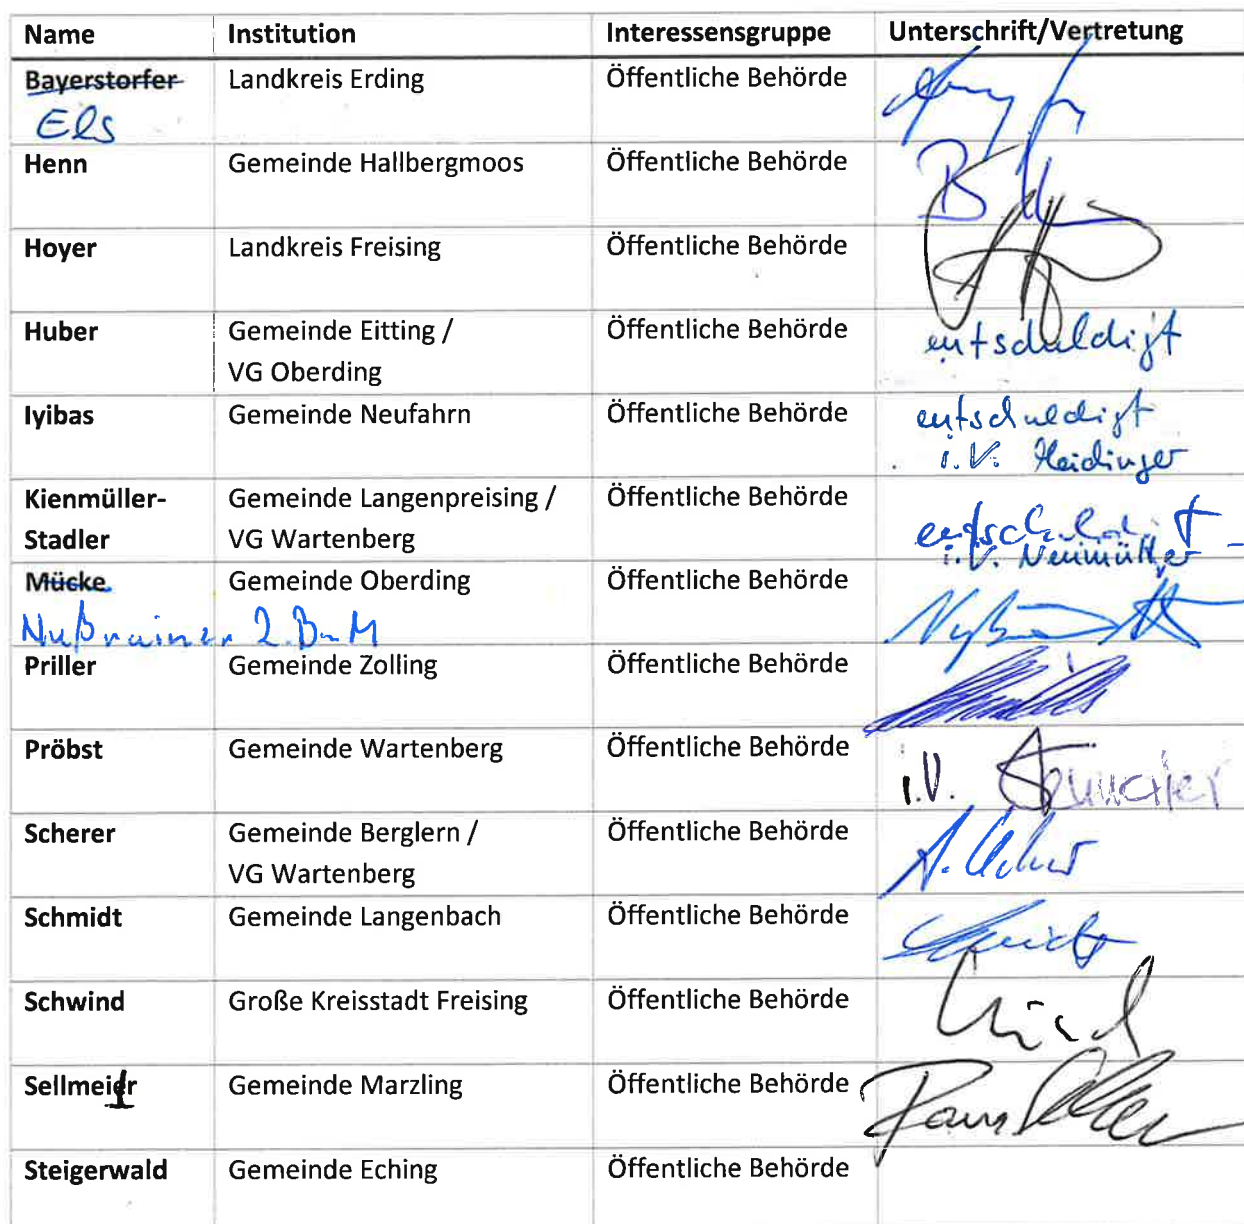 Name Institution Interessensgruppe Unterschrift/Vertretung
Bayerstorfer Landkreis Erding Öffentliche Behörde
Els
Henn Gemeinde Hallbergmoos Öffentliche Behörde
Hoyer Landkreis Freising Öffentliche Behörde
Huber Gemeinde Eitting / Öffentliche Behörde entschuldigt
VG Oberding
Iyibas Gemeinde Neufahrn Öffentliche Behörde entschuldigt
i.V. Heidinger
Kienmüller- Gemeinde Langenpreising / Öffentliche Behörde entschuldigt
Stadler VG Wartenberg i.V. Neumüller
Mücke Gemeinde Oberding Öffentliche Behörde
Nußrainer 2. BgM
Priller Gemeinde Zolling Öffentliche Behörde
Pröbst Gemeinde Wartenberg Öffentliche Behörde i.V.
Scherer Gemeinde Berglern / Öffentliche Behörde
VG Wartenberg
Schmidt Gemeinde Langenbach Öffentliche Behörde
Schwind Große Kreisstadt Freising Öffentliche Behörde
Sellmeir Gemeinde Marzling Öffentliche Behörde
Steigerwald Gemeinde Eching Öffentliche Behörde